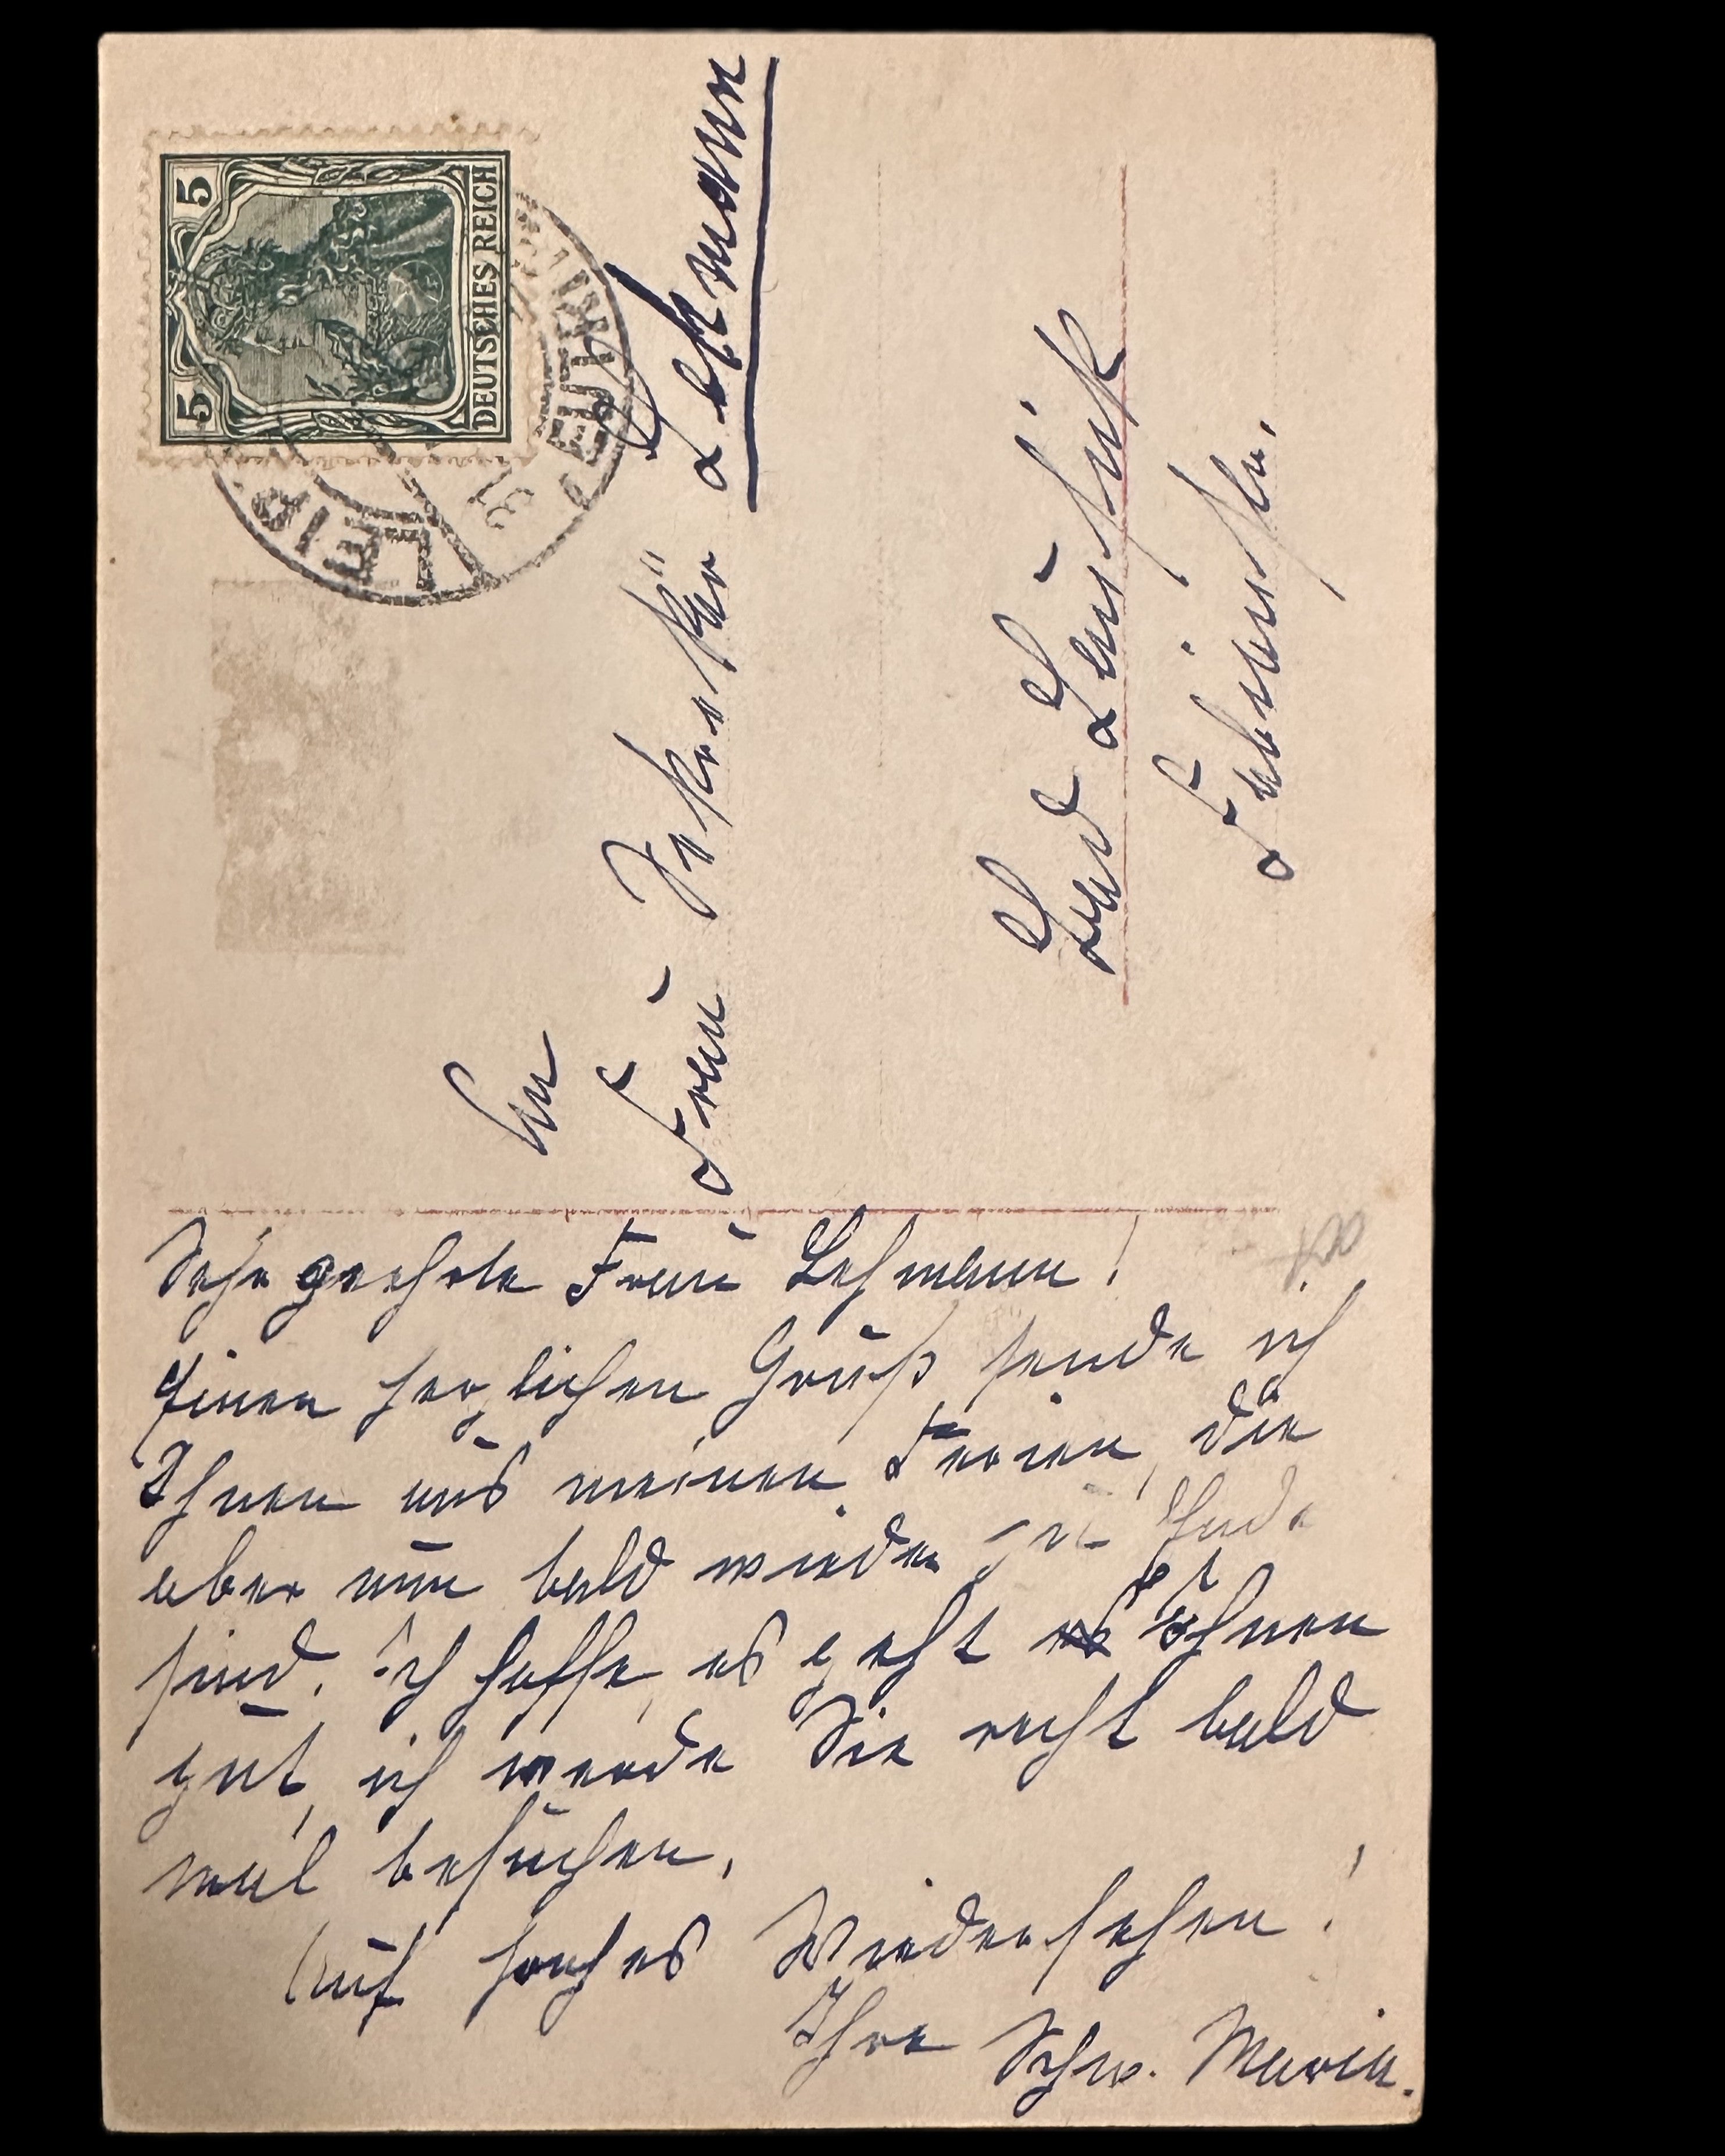 5 5
DEUTSCHES REICH
LEIP
An
Frau Sekretär Lehmann
Bad Lausick
Fabrikstr.
Sehr geehrte Frau Lehmann!
Einen herzlichen Gruß sende ich
Ihnen aus meinen Ferien, die
aber nun bald wieder zu Ende
sind. Ich hoffe, es geht es Ihnen
gut, ich werde Sie recht bald
mal besuchen.
Auf frohes Wiedersehen!
Ihre Schw. Maria.